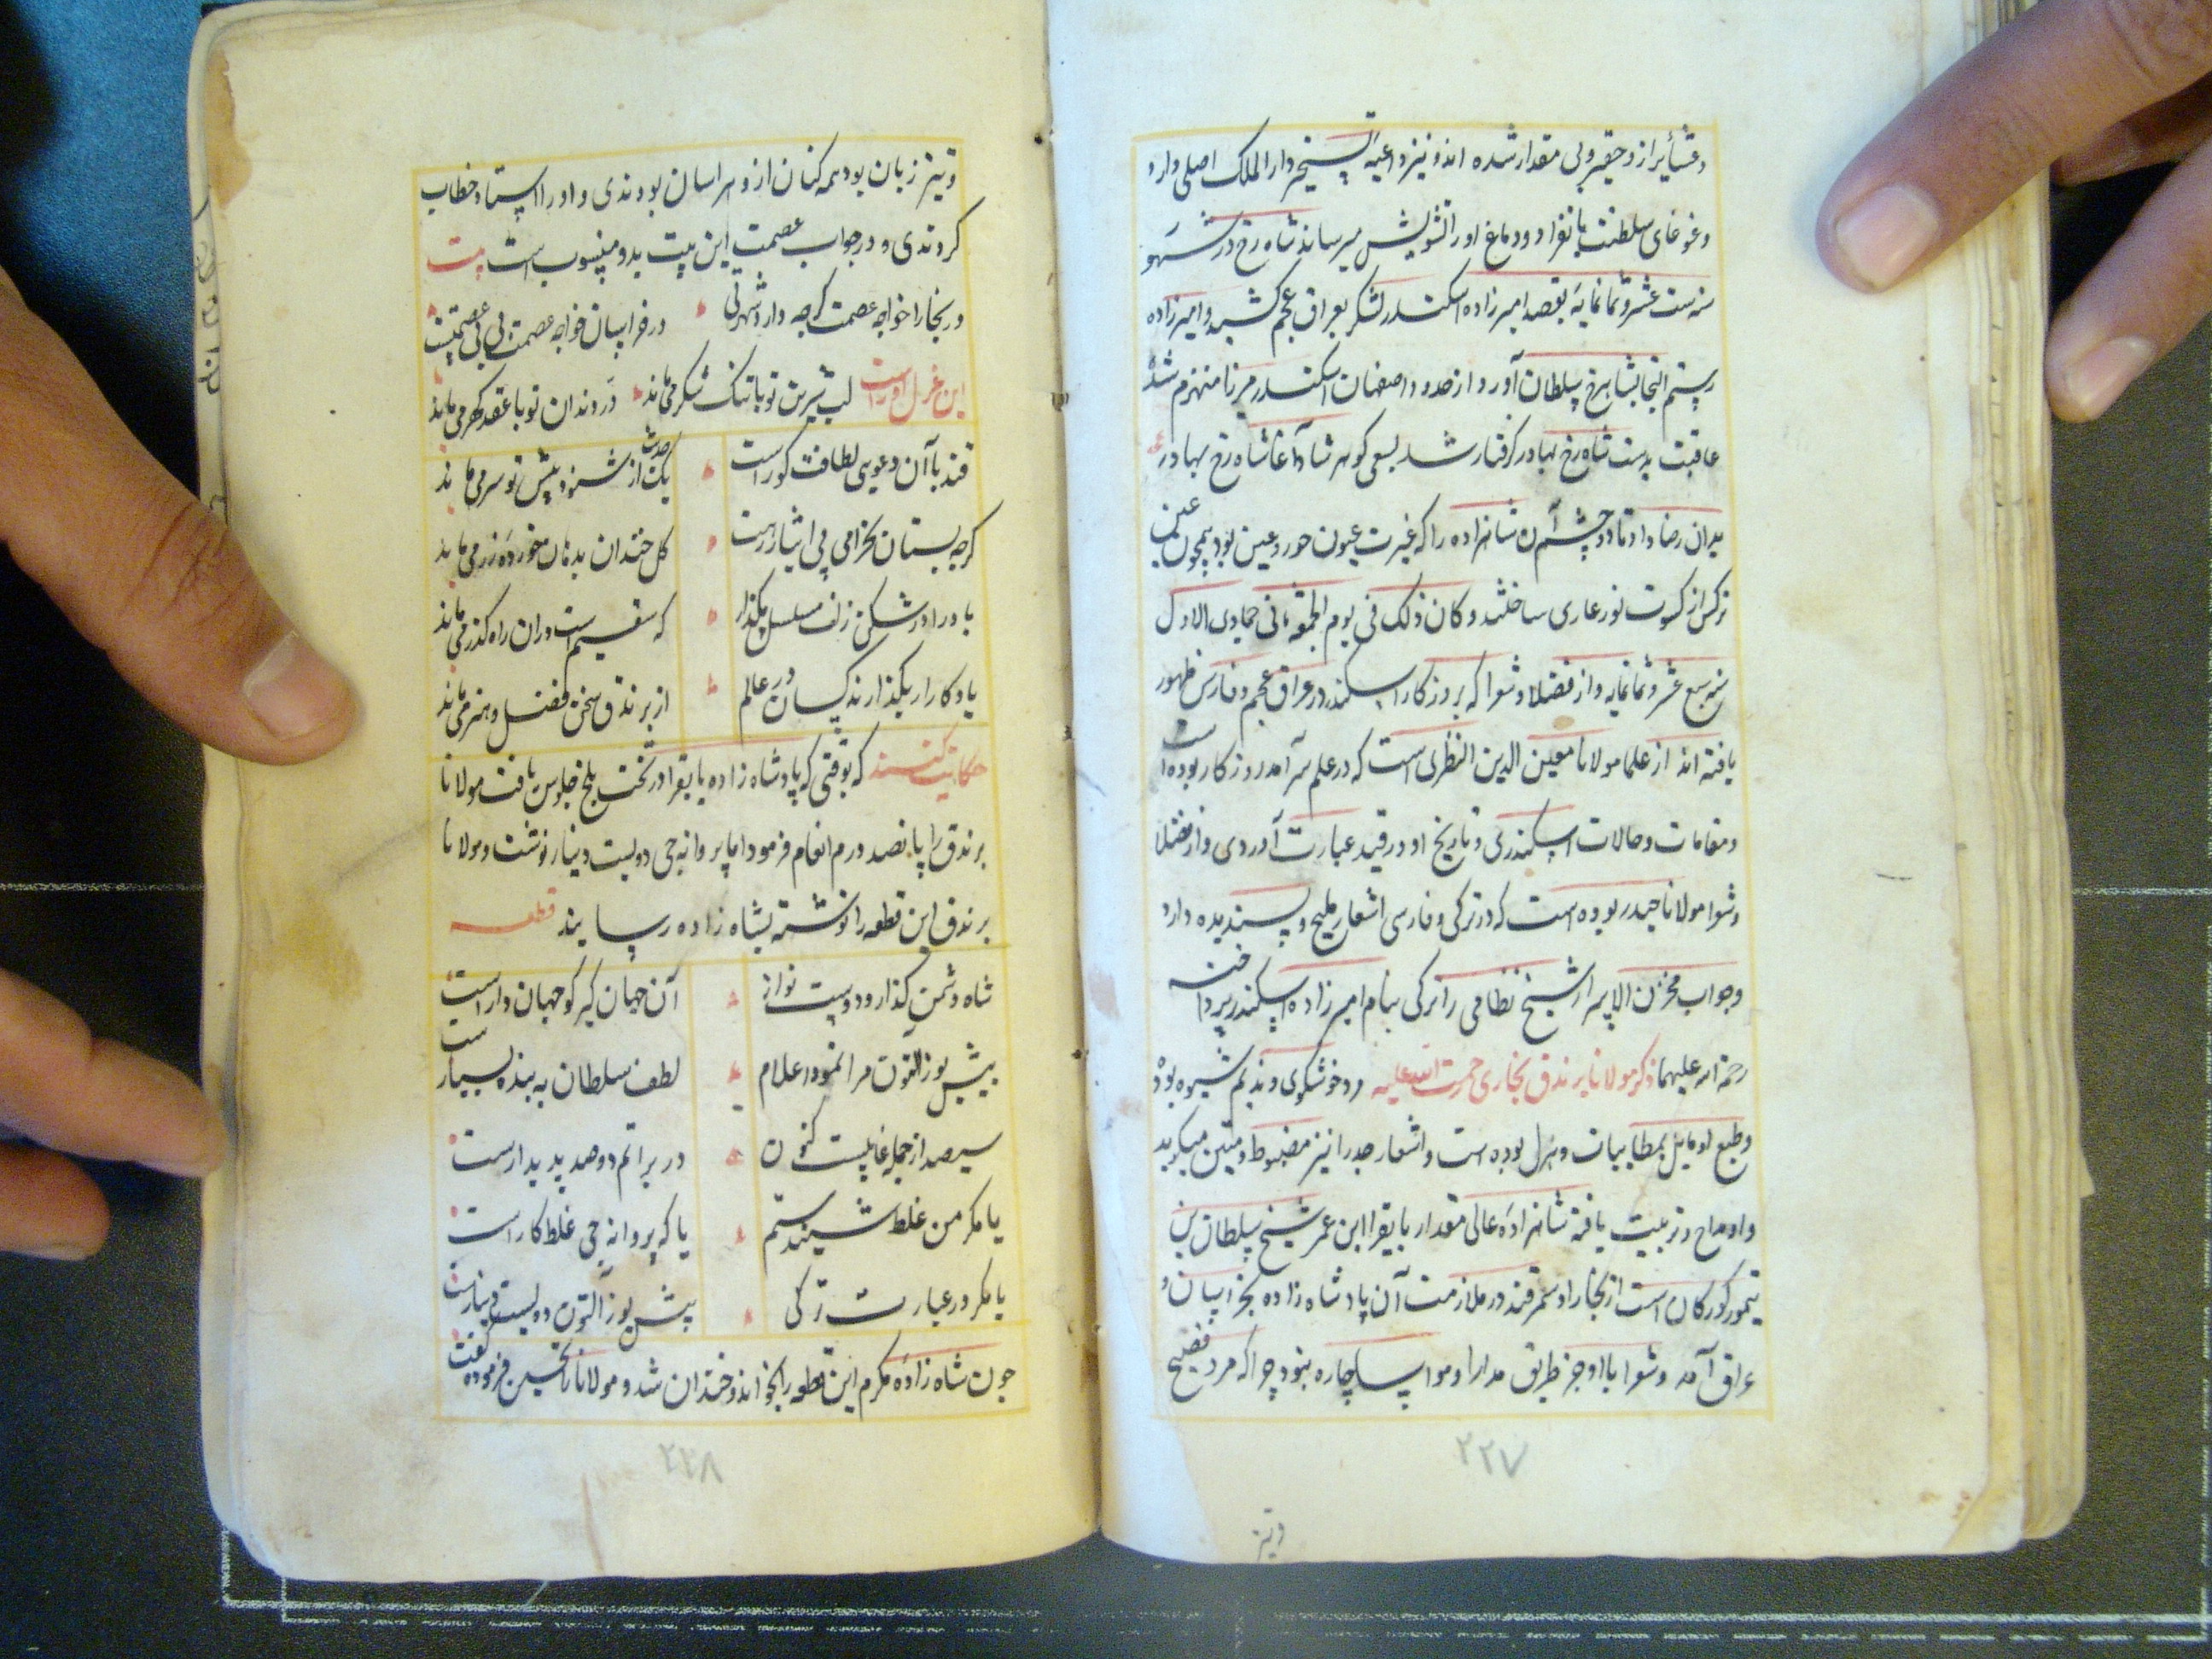 وعشایر ازو حقیر و بی مقدار شده اند و نیز داعیه تسخیر دار الملک اصلی دارد
وغوغای سلطنت بانفراد دماغ او را تشویش میرساند شاه رخ در شهور
سنه ست عشر و ثمانمایه بقصد امیرزاده اسکندر لشکر بعراق عجم کشید و امیرزاده
رستم التجا بشاهرخ سلطان آورد و از حدود اصفهان اسکندر میرزا منهزم شد
عاقبت بدست شاه رخ بهادر گرفتار شد بسعی گوهر شاد آغا شاه رخ بهادر
بدان رضا داد تا دو چشم آن شاهزاده را که غیرت عیون حور و عین بود همچون عین
نرگس از کسوت نور عاری ساختند و کان ذلک فی یوم الجمعه ثانی جمادی الاول
سنه سبع عشر و ثمانمایه و از فضلا و شعرا که بروزگار اسکندر در عراق عجم و فارس ظهور
یافته اند از علما مولانا معین الدین النظزی است که در علم سرآمد روزگار بوده است
ومقامات و حالات اسکندری و تاریخ او در قید عبارت آوردی و از فضلا
وشعرا مولانا حیدر بوده است که در ترکی و فارسی اشعار ملیح و پسندیده دارد
وجواب مخزن الاسرار شیخ نظامی را ترکی بنام امیرزاده اسکندر پرداخته
رحمة الله علیهما ذکر مولانا برندق بخاری رحمت الله علیه مرد خوشگوی و ندیم شیوه بوده
وطبع او مایل بمطایبات و هزل بوده است و اشعار جد را نیز مضبوط و متین میگوید
واو مداح و تربیت یافته شاهزاده عالی مقدار بایقرا ابن عمر شیخ سلطان بن
تیمور کورکان است از بخارا و سمرقند در ملازمت آن پادشاه زاده بخراسان و
عراق آمد و شعرا با او جز طریق مدارا و مواسا چاره نبود چرا که مرد فصیح
۲۲۷
وتیز
وتیز زبان بود همه کنان ازو هراسان بودندی و او را استاد خطاب
کردندی و در جواب عصمت این بیت بدو منسوب است بیت
در بخارا خواجه عصمت گرچه دارد شهرتی در خراسان خواجه عصمت بی بی عصمتیست
این غزل او راست لب شیرین تو با تنگ شکر می ماند در دندان تو با عقد گهر می ماند
قند با آن دعوی لطافت کوراست یک حدیث از شنود پیش تو سر می ماند
گر چه بستان بخرامی پی ایثار رهت گل خندان بدهان خورده زر می ماند
باد را در شکن زلف مسلسل مگذار که سقیم است دران راه گذر می ماند
یادگار ار بگذارند کسان در عالم از برندق سخن فضل و هنر می ماند
حکایت کنند که بوقتی که پادشاه زاده بایقرا در تخت بلخ جلوس یافت مولانا
برندق را پانصد درم انعام فرمود اما پروانه چی دویست دینار نوشت و مولانا
برندق این قطعه را نوشته بشاه زاده رسانید قطعه
شاه دشمن گداز و دوست نواز آن جهان گیر کو جهان دار است
بیش یوز آلتون مرا نمود اعلام لطف سلطان به بنده بسیار است
سیصد از جمله غایبست کنون در براتم دو صد پدیدار است
یا مگر من غلط شنیدستم یا که پروانه چی غلط کار است
یا مگر در عبارت ترکی بیش یوز آلتون دویست دینار است
چون شاه زاده مکرم این قطعه را بخواند و خندان شد و مولانا را تحسین فرموده گفت
۲۲۸